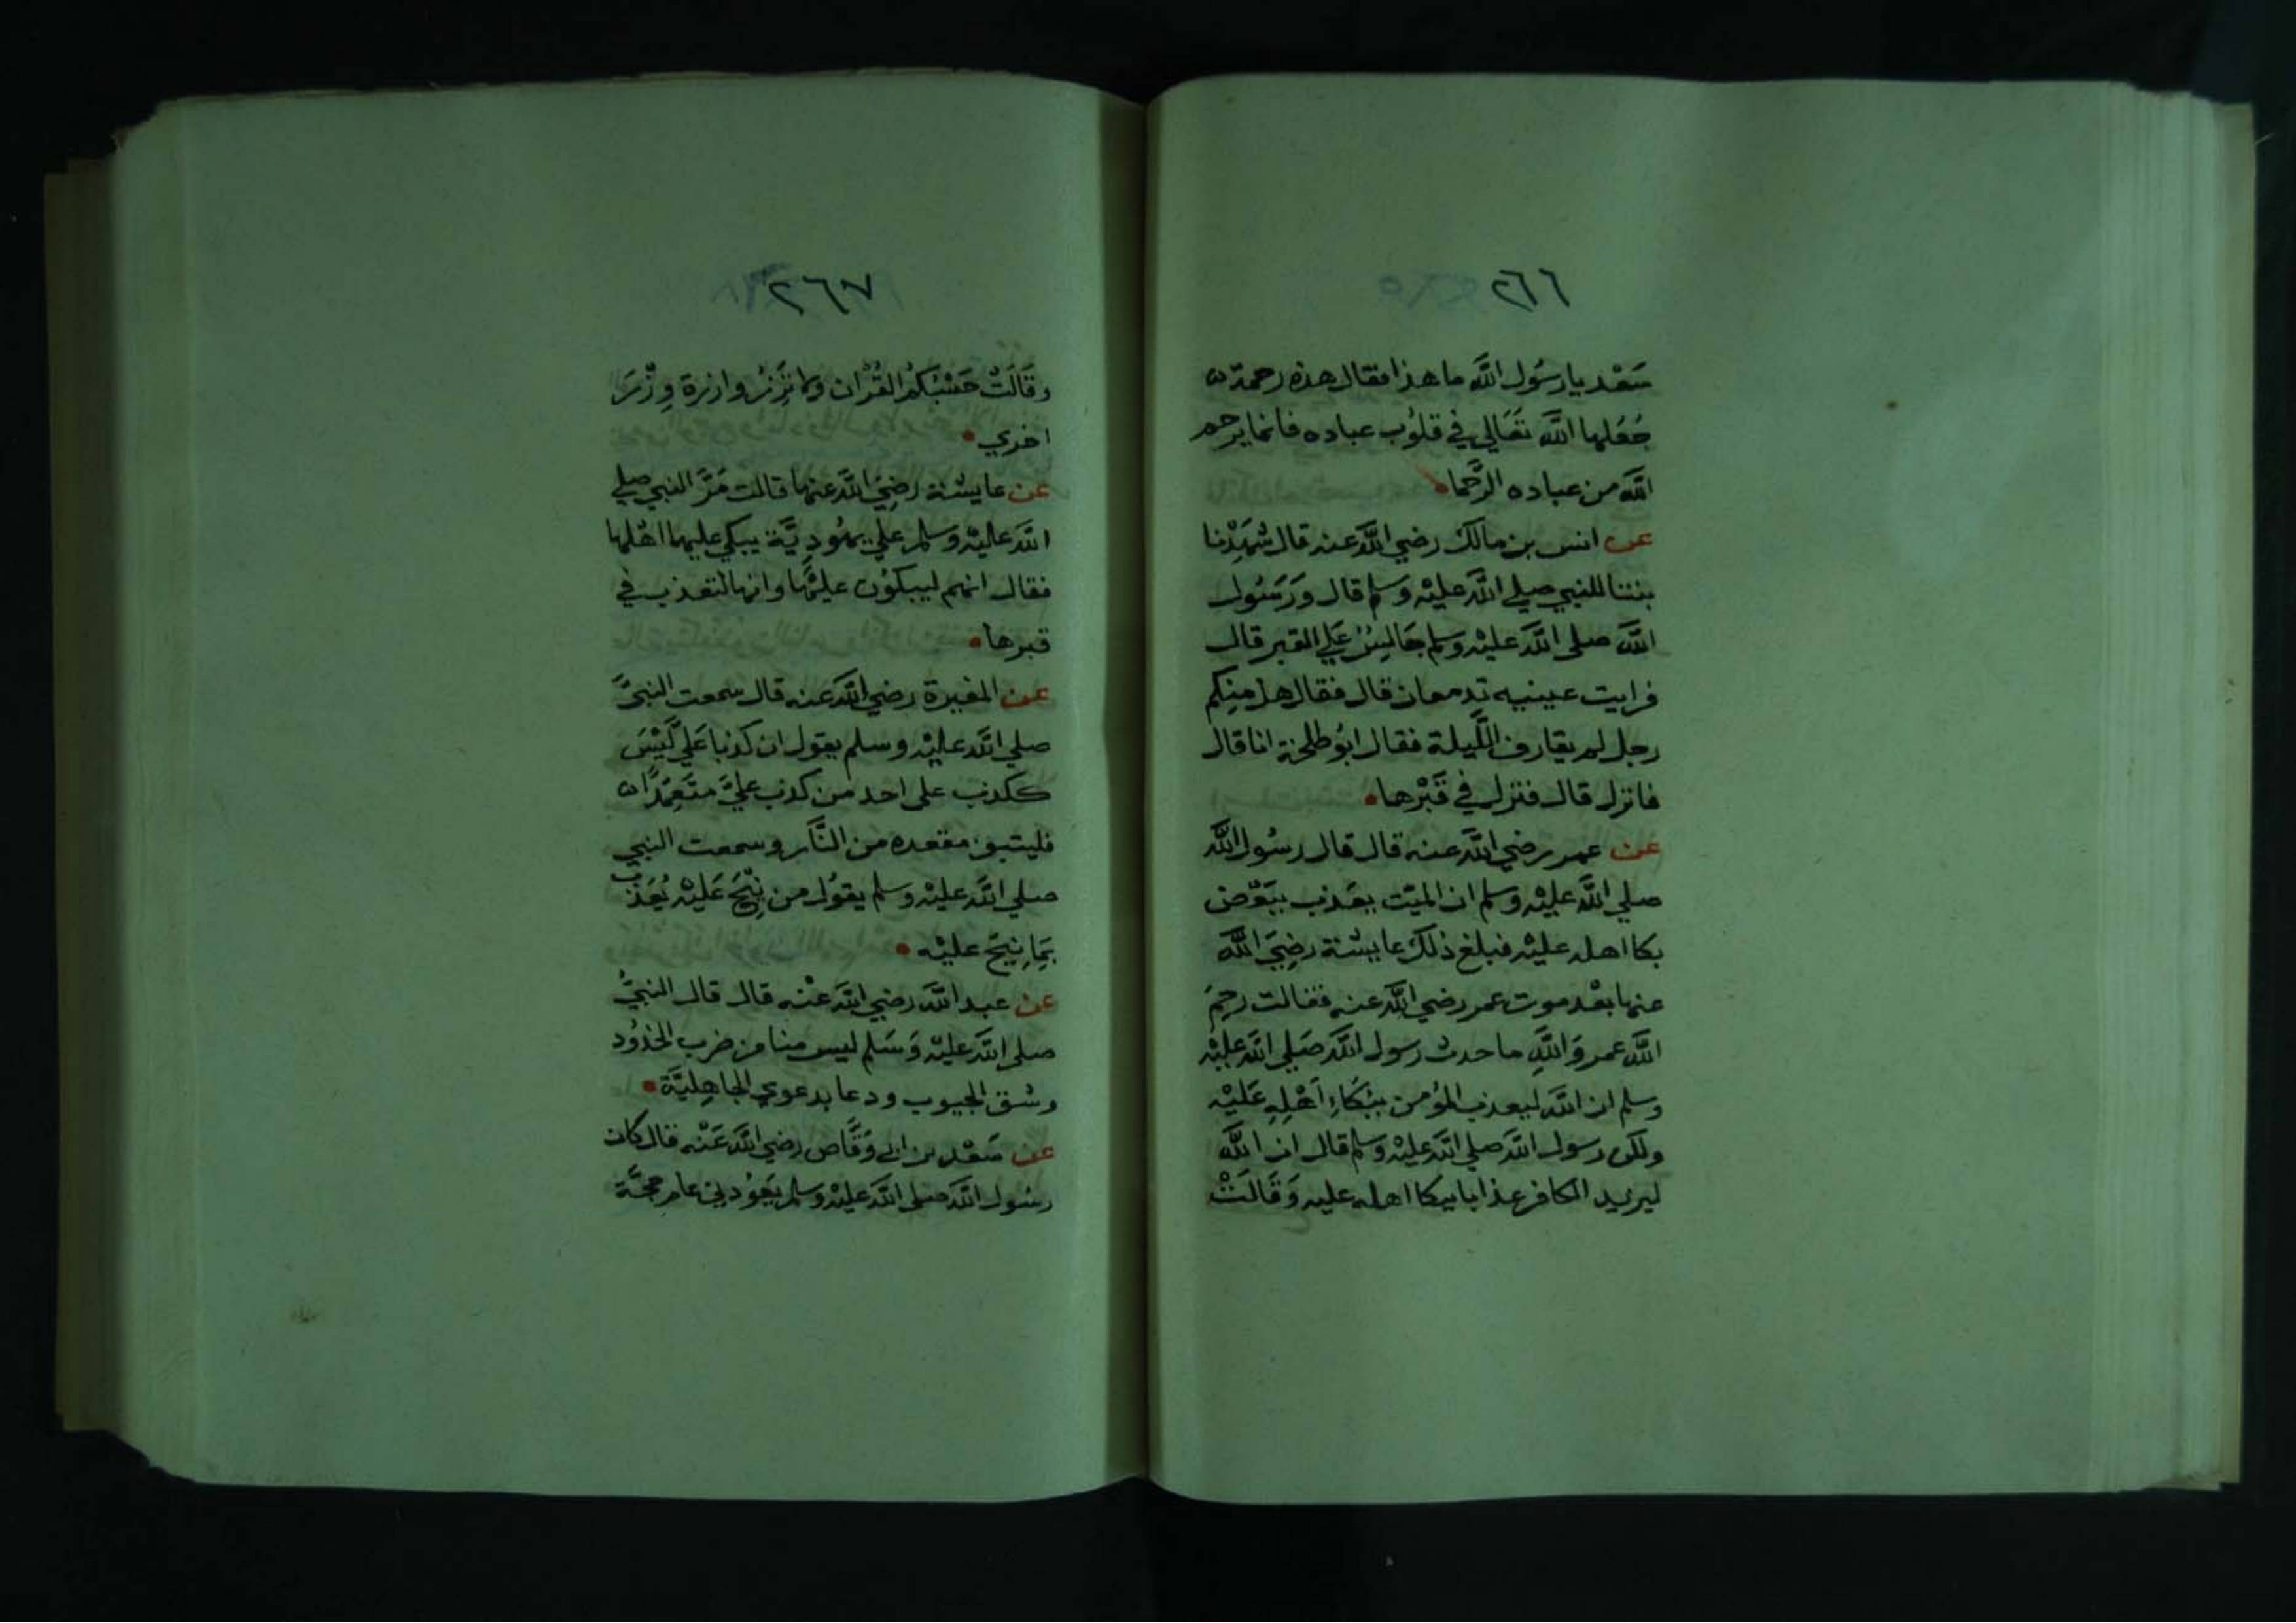 ٢٦٦
سَعْد يا رسُول اللَّه ما هذا فقال هذه رحمة
جَعَلها اللَّه تَعَالي في قلوُب عباده فانما يرحم
اللَّه من عباده الرُّحَما
عن انس بن مالك رضي اللَّه عنه قال شَهِدْنا
بنتا للنبي صلي اللَّه عليْه وسلم قال وَرَسُول
اللَّه صلى اللَّه عليْه وسلم جَالِسٌ عَلي القبر قال
فرايت عينيه تدمعان قال فقال هل مِنكم
رجل لم يقارف اللَّيلة فقال ابُو طلحة انا قال
فانزل قال فنزل في قَبْرها
عن عمر رضي اللَّه عنه قال قال رسُول اللَّه
صلي اللَّه عليْه وسلم ان الميّت يعَذب ببَعْض
بكا اهله عليْه فبلغ ذلك عايشة رضِيَ اللَّه
عنها بعْد موت عمر رضي اللَّه عنه فقالت رحِمَ
اللَّه عمر وَاللَّهِ ما حدث رسول اللَّه صَلي اللَّه عليْه
وسلم ان اللَّه ليعذب المؤمن ببُكَاءِ اَهْلِهِ عَليْه
ولكن رسول اللَّه صلي اللَّه عليْه وسلم قال ان اللَّه
ليزيد الكافر عذابا ببكا اهله عليه وَقَالَتْ
٢٦٧
وقَالَتْ حَسْبُكمُ القُرْان وَلا تَزِرُ وازرة وِزْرَ
اخري
عن عايشة رضِيَ اللَّه عنها قالت مَرَّ النبي صلي
اللَّه عليْه وسلم علي يهُودِيَّة يبكي عليها اهْلها
فقال انهم ليبكوُن عليْها وانها لتعذب في
قبرها
عن المغيرة رضي اللَّه عنه قال سمعت النبيَّ
صلي اللَّه عليْه وسلم يقول ان كذبا عَلي لَيْسَ
ككذب على احد من كذب عليَّ متَعمِّدًا
فليتبوء مقعده من النَّار وسمعت النبي
صلي اللَّه عليْه وسلم يقوُل من نِيْحَ عَليْه يُعَذب
بمَا نِيْحَ عليْه
عن عبد اللَّه رضي اللَّه عنْه قال قال النبيُّ
صلى اللَّه عليْه وَسَلم ليس منا من ضرب الخدُود
وشق الجيوب ودعا بدعوي الجاهِليَّة
عن سَعْد بن ابي وَقَّاص رضي اللَّه عَنْه قال كان
رسُول اللَّه صلى اللَّه عليْه وسلم يَعوُدني عام حجَّة